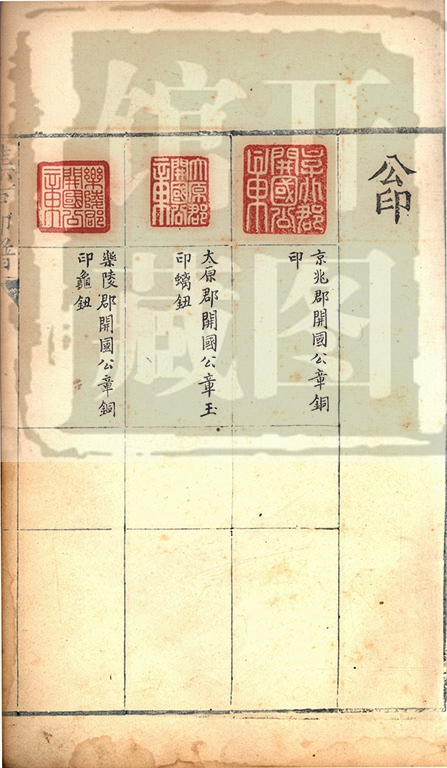 公印
京兆郡
開國公
章
京兆郡開國公章銅
印
太原郡
開國公
章
太原郡開國公章玉
印螭鈕
樂陵郡
開國公
章
樂陵郡開國公章銅
印龜鈕
图
馆藏